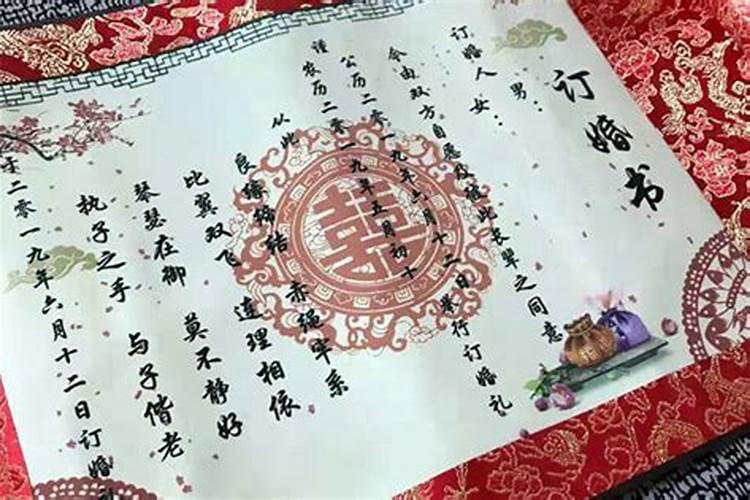 订婚书
男：
订婚人女：
今由双方自愿及征此长辈之同意
公历二零一九年六月十二日举行订婚礼
谨农历二零一九年五月初十
从此
良缘缔结 赤绳牢系
比翼双飞 连理相依
琴瑟在御 莫不静好
执子之手 与子偕老
于二零一九年六月十二日订婚